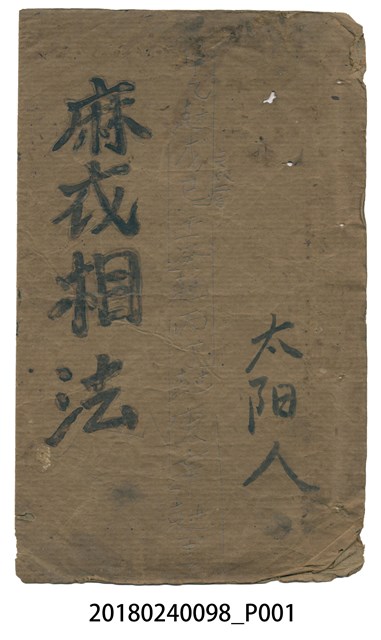 麻衣相法
太阳人
20180240098_P001